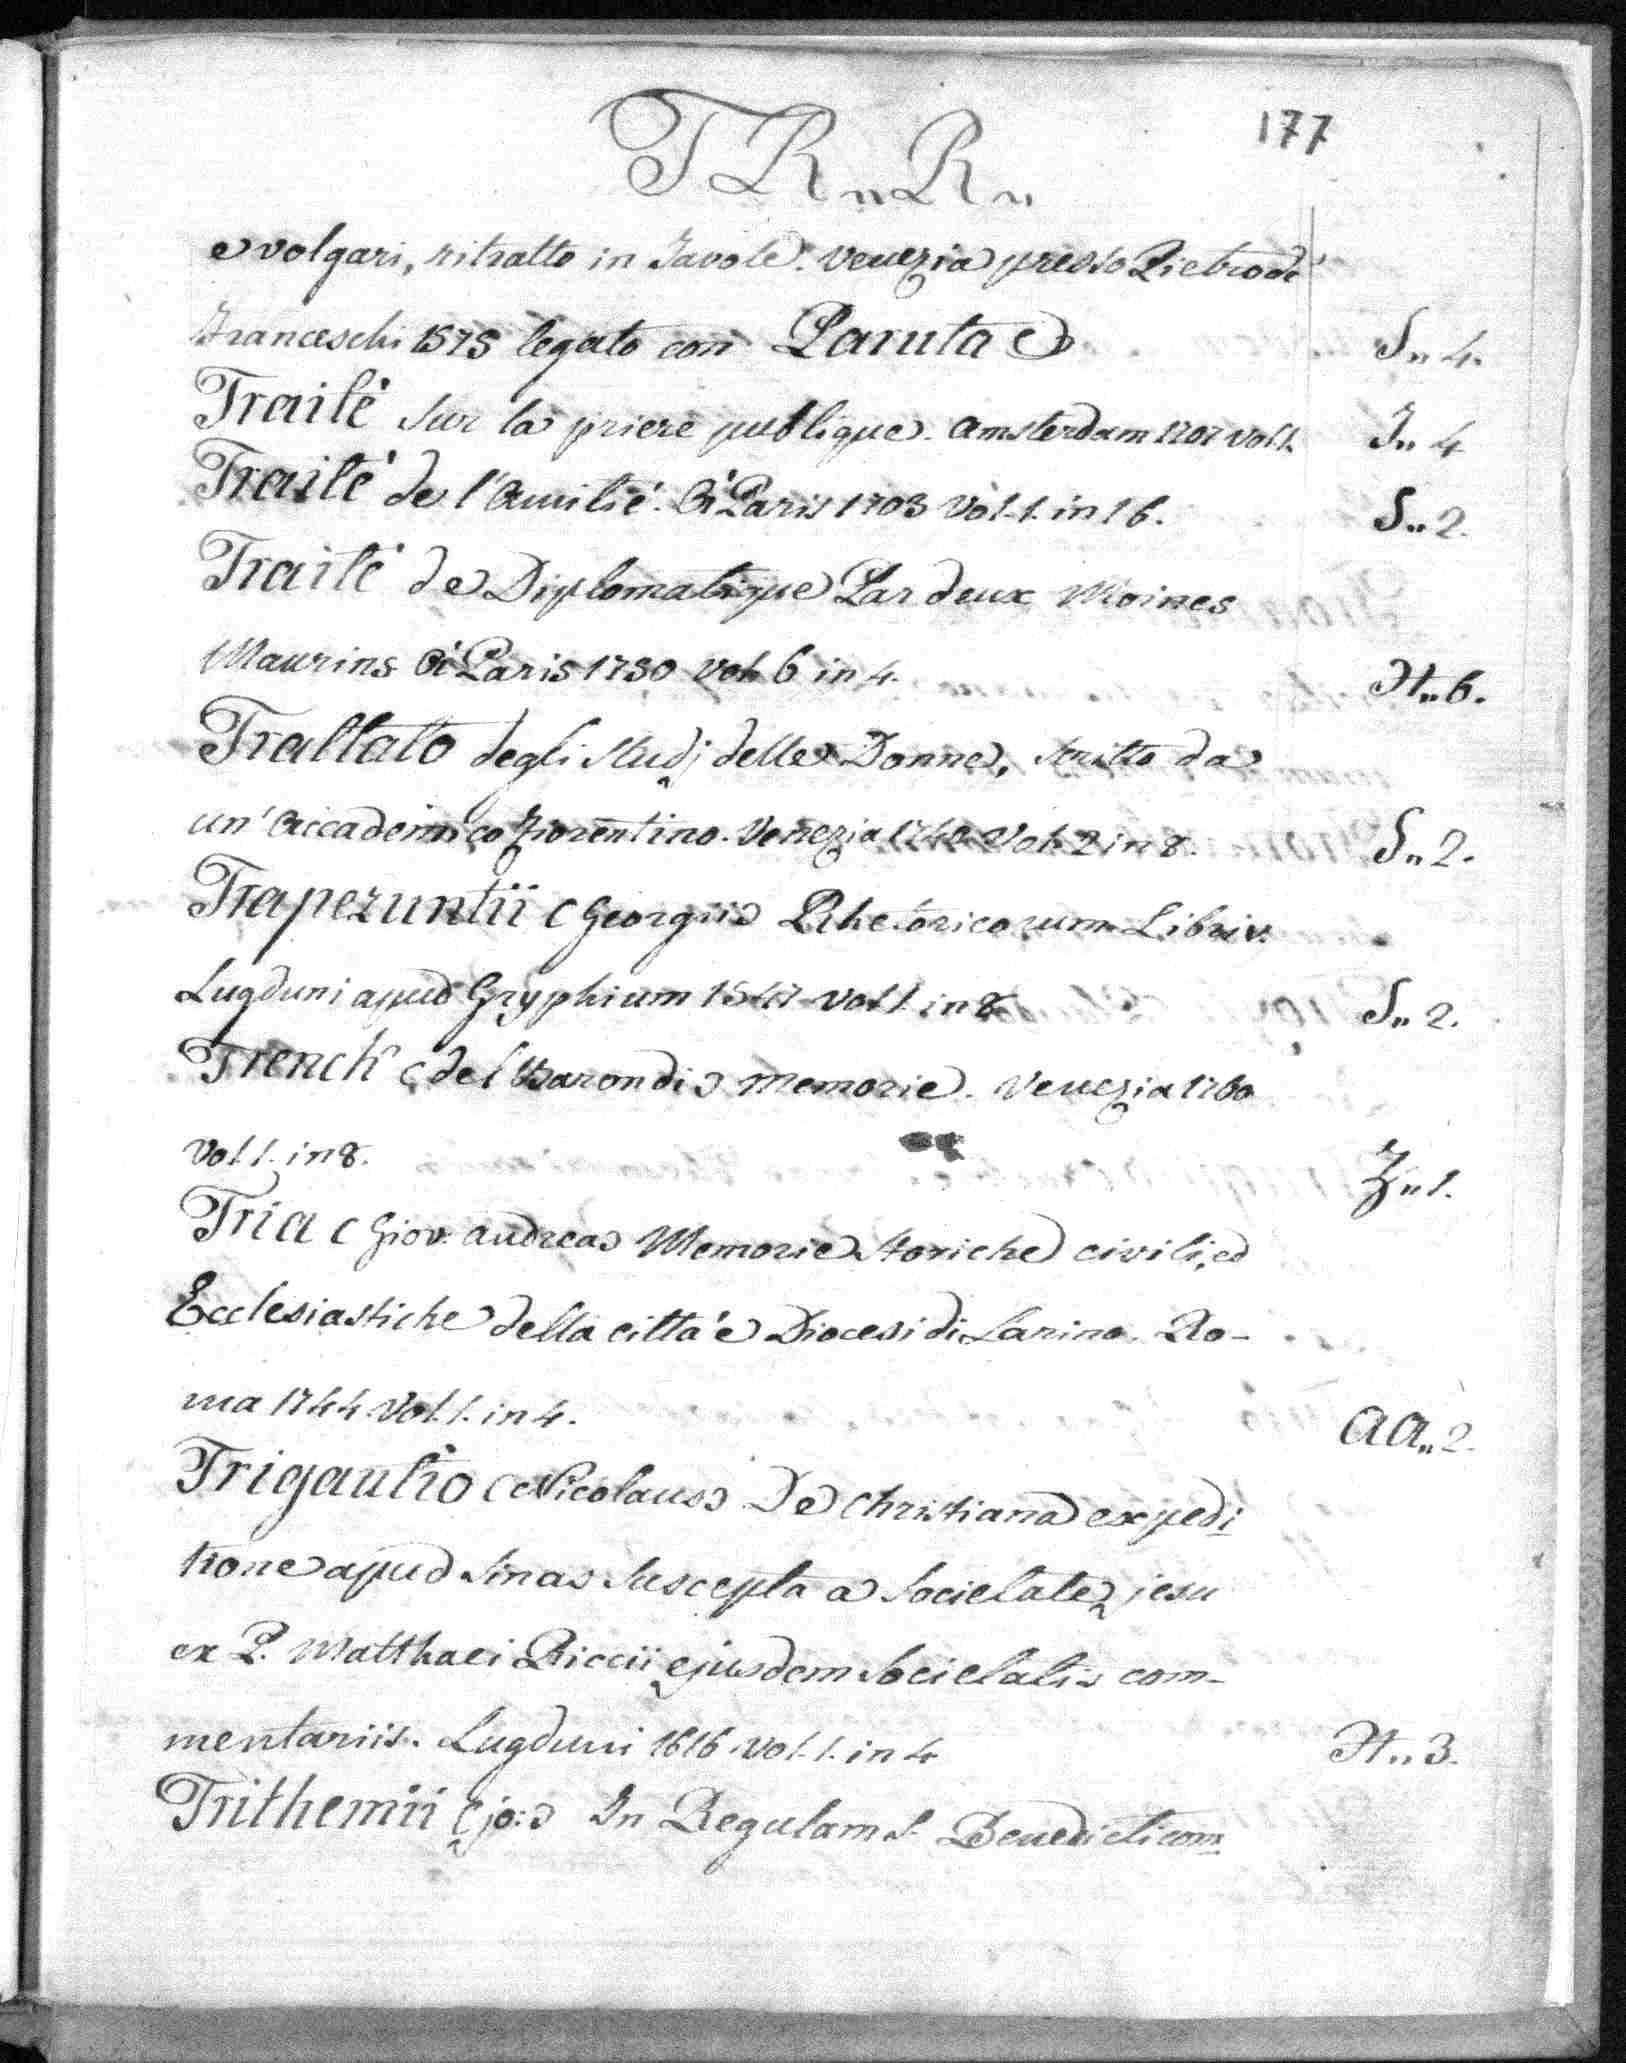 177
TR„R„
e volgari, ritratto in Tavole. Venezia presso Pietro de'
Franceschi 1575 legato con Paruta S„4.
Traité sur la priere publique. Amsterdam 1707 vol. 1. I„4
Traité de l'Amitié. à Paris 1703 Vol. 1. in 16. S„2.
Traité de Diplomatique Par deux Moines
Maurins à Paris 1750 vol. 6 in 4. H„6.
Trattato degli Studj delle Donne, scritto da
un'Accademico Fiorentino. Venezia 1740 Vol. 2 in 8. S„2.
Trapezuntii (Georgii) Rhetoricorum Libri v.
Lugduni apud Gryphium 1547 vol. 1. in 8 S„2.
Trench (del Baron di) memorie. Venezia 1760
Vol. 1. in 8. Z„1.
Tria (Giov. Andrea) Memorie Storiche civili, ed
Ecclesiastiche della città e Diocesi di Larino. Ro-
ma 1744. Vol. 1. in 4. AA„2.
Trigautio (Nicolaus) De Christiana expedi
tione apud Sinas suscepta a Societate jesu
ex P. Matthaei Riccii ejusdem Societatis com-
mentariis. Lugduni 1616. Vol. 1. in 4 H„3.
Trithemii (jo:) In Regulam S. Benedicti com